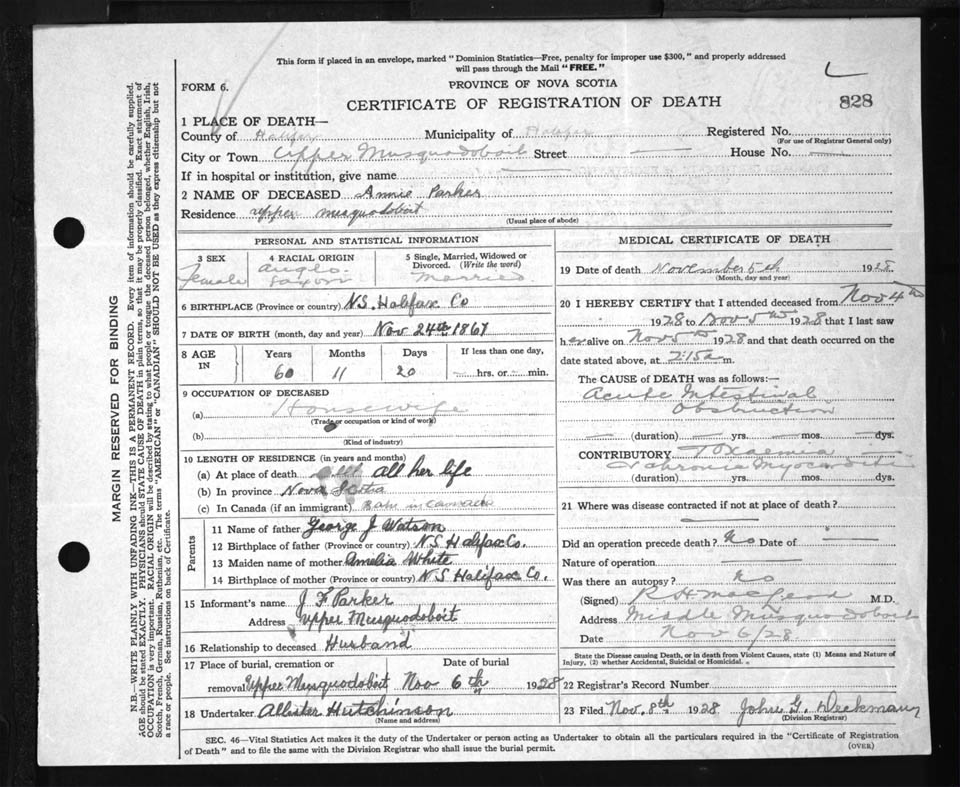 This form if placed in an envelope, marked "Dominion Statistics—Free, penalty for improper use $300," and properly addressed
will pass through the Mail "FREE."
FORM 6.
PROVINCE OF NOVA SCOTIA
CERTIFICATE OF REGISTRATION OF DEATH
828
1 PLACE OF DEATH—
County of Halifax Municipality of Halifax Registered No.
(For use of Registrar General only)
City or Town Upper Musquodoboit Street — House No. —
If in hospital or institution, give name
2 NAME OF DECEASED Annie Parker
Residence Upper Musquodoboit
(Usual place of abode)
PERSONAL AND STATISTICAL INFORMATION
3 SEX
Female
4 RACIAL ORIGIN
Anglo-
Saxon
5 Single, Married, Widowed or
Divorced. (Write the word)
Married
6 BIRTHPLACE (Province or country) N.S. Halifax Co
7 DATE OF BIRTH (month, day and year) Nov 24th 1867
8 AGE
IN
Years
60
Months
11
Days
20
If less than one day,
— hrs. or — min.
9 OCCUPATION OF DECEASED
(a) Housewife
(Trade or occupation or kind of work)
(b)
(Kind of industry)
10 LENGTH OF RESIDENCE (in years and months)
(a) At place of death all her life
(b) In province Nova Scotia
(c) In Canada (if an immigrant) Born in Canada
Parents
11 Name of father George J Watson
12 Birthplace of father (Province or country) N.S Halifax Co.
13 Maiden name of mother Amelia White
14 Birthplace of mother (Province or country) N.S Halifax Co.
15 Informant's name J F Parker
Address Upper Musquodoboit
16 Relationship to deceased Husband
17 Place of burial, cremation or Date of burial
removal Upper Musquodoboit Nov 6th 1928
18 Undertaker Allister Hutchinson
(Name and address)
MEDICAL CERTIFICATE OF DEATH
19 Date of death November 5th 1928
(Month, day and year)
20 I HEREBY CERTIFY that I attended deceased from Nov 4th
1928 to Nov 5th 1928 that I last saw
her alive on Nov 5th 1928 and that death occurred on the
date stated above, at 2:15a m.
The CAUSE of DEATH was as follows:—
Acute Intestinal
Obstruction
— (duration) — yrs. — mos. — dys.
CONTRIBUTORY Toxaemia
Chronic Myocarditis
(duration) yrs. mos. dys.
21 Where was disease contracted if not at place of death?
Did an operation precede death? No Date of —
Nature of operation —
Was there an autopsy? No
(Signed) R H MacLeod M.D.
Address Middle Musquodoboit
Date Nov 6/28
State the Disease causing Death, or in death from Violent Causes, state (1) Means and Nature of
Injury, (2) whether Accidental, Suicidal or Homicidal.
22 Registrar's Record Number
23 Filed Nov. 8th 1928 John G. Deckmann
(Division Registrar)
SEC. 46—Vital Statistics Act makes it the duty of the Undertaker or person acting as Undertaker to obtain all the particulars required in the "Certificate of Registration
of Death" and to file the same with the Division Registrar who shall issue the burial permit.
(OVER)
MARGIN RESERVED FOR BINDING
N.B.—WRITE PLAINLY, WITH UNFADING INK—THIS IS A PERMANENT RECORD. Every item of information should be carefully supplied.
AGE should be stated EXACTLY. PHYSICIANS should STATE CAUSE OF DEATH in plain terms, so that it may be properly classified. Exact statement of
OCCUPATION is very important. RACIAL ORIGIN will be described by stating to what people or tongue the deceased person belonged, whether English, Irish,
Scotch, French, German, Russian, Ruthenian, etc. The terms "AMERICAN" or "CANADIAN" SHOULD NOT BE USED as they express citizenship but not
a race or people. See instructions on back of Certificate.